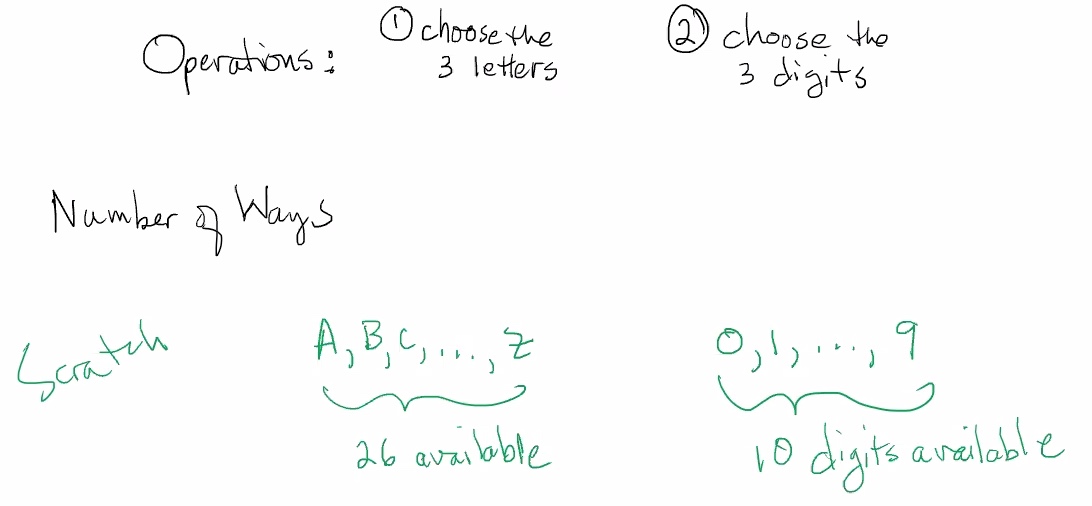 Operations: ① choose the 3 letters ② choose the 3 digits
Number of Ways
Scratch A, B, C, ..., Z 0, 1, ..., 9
26 available 10 digits available